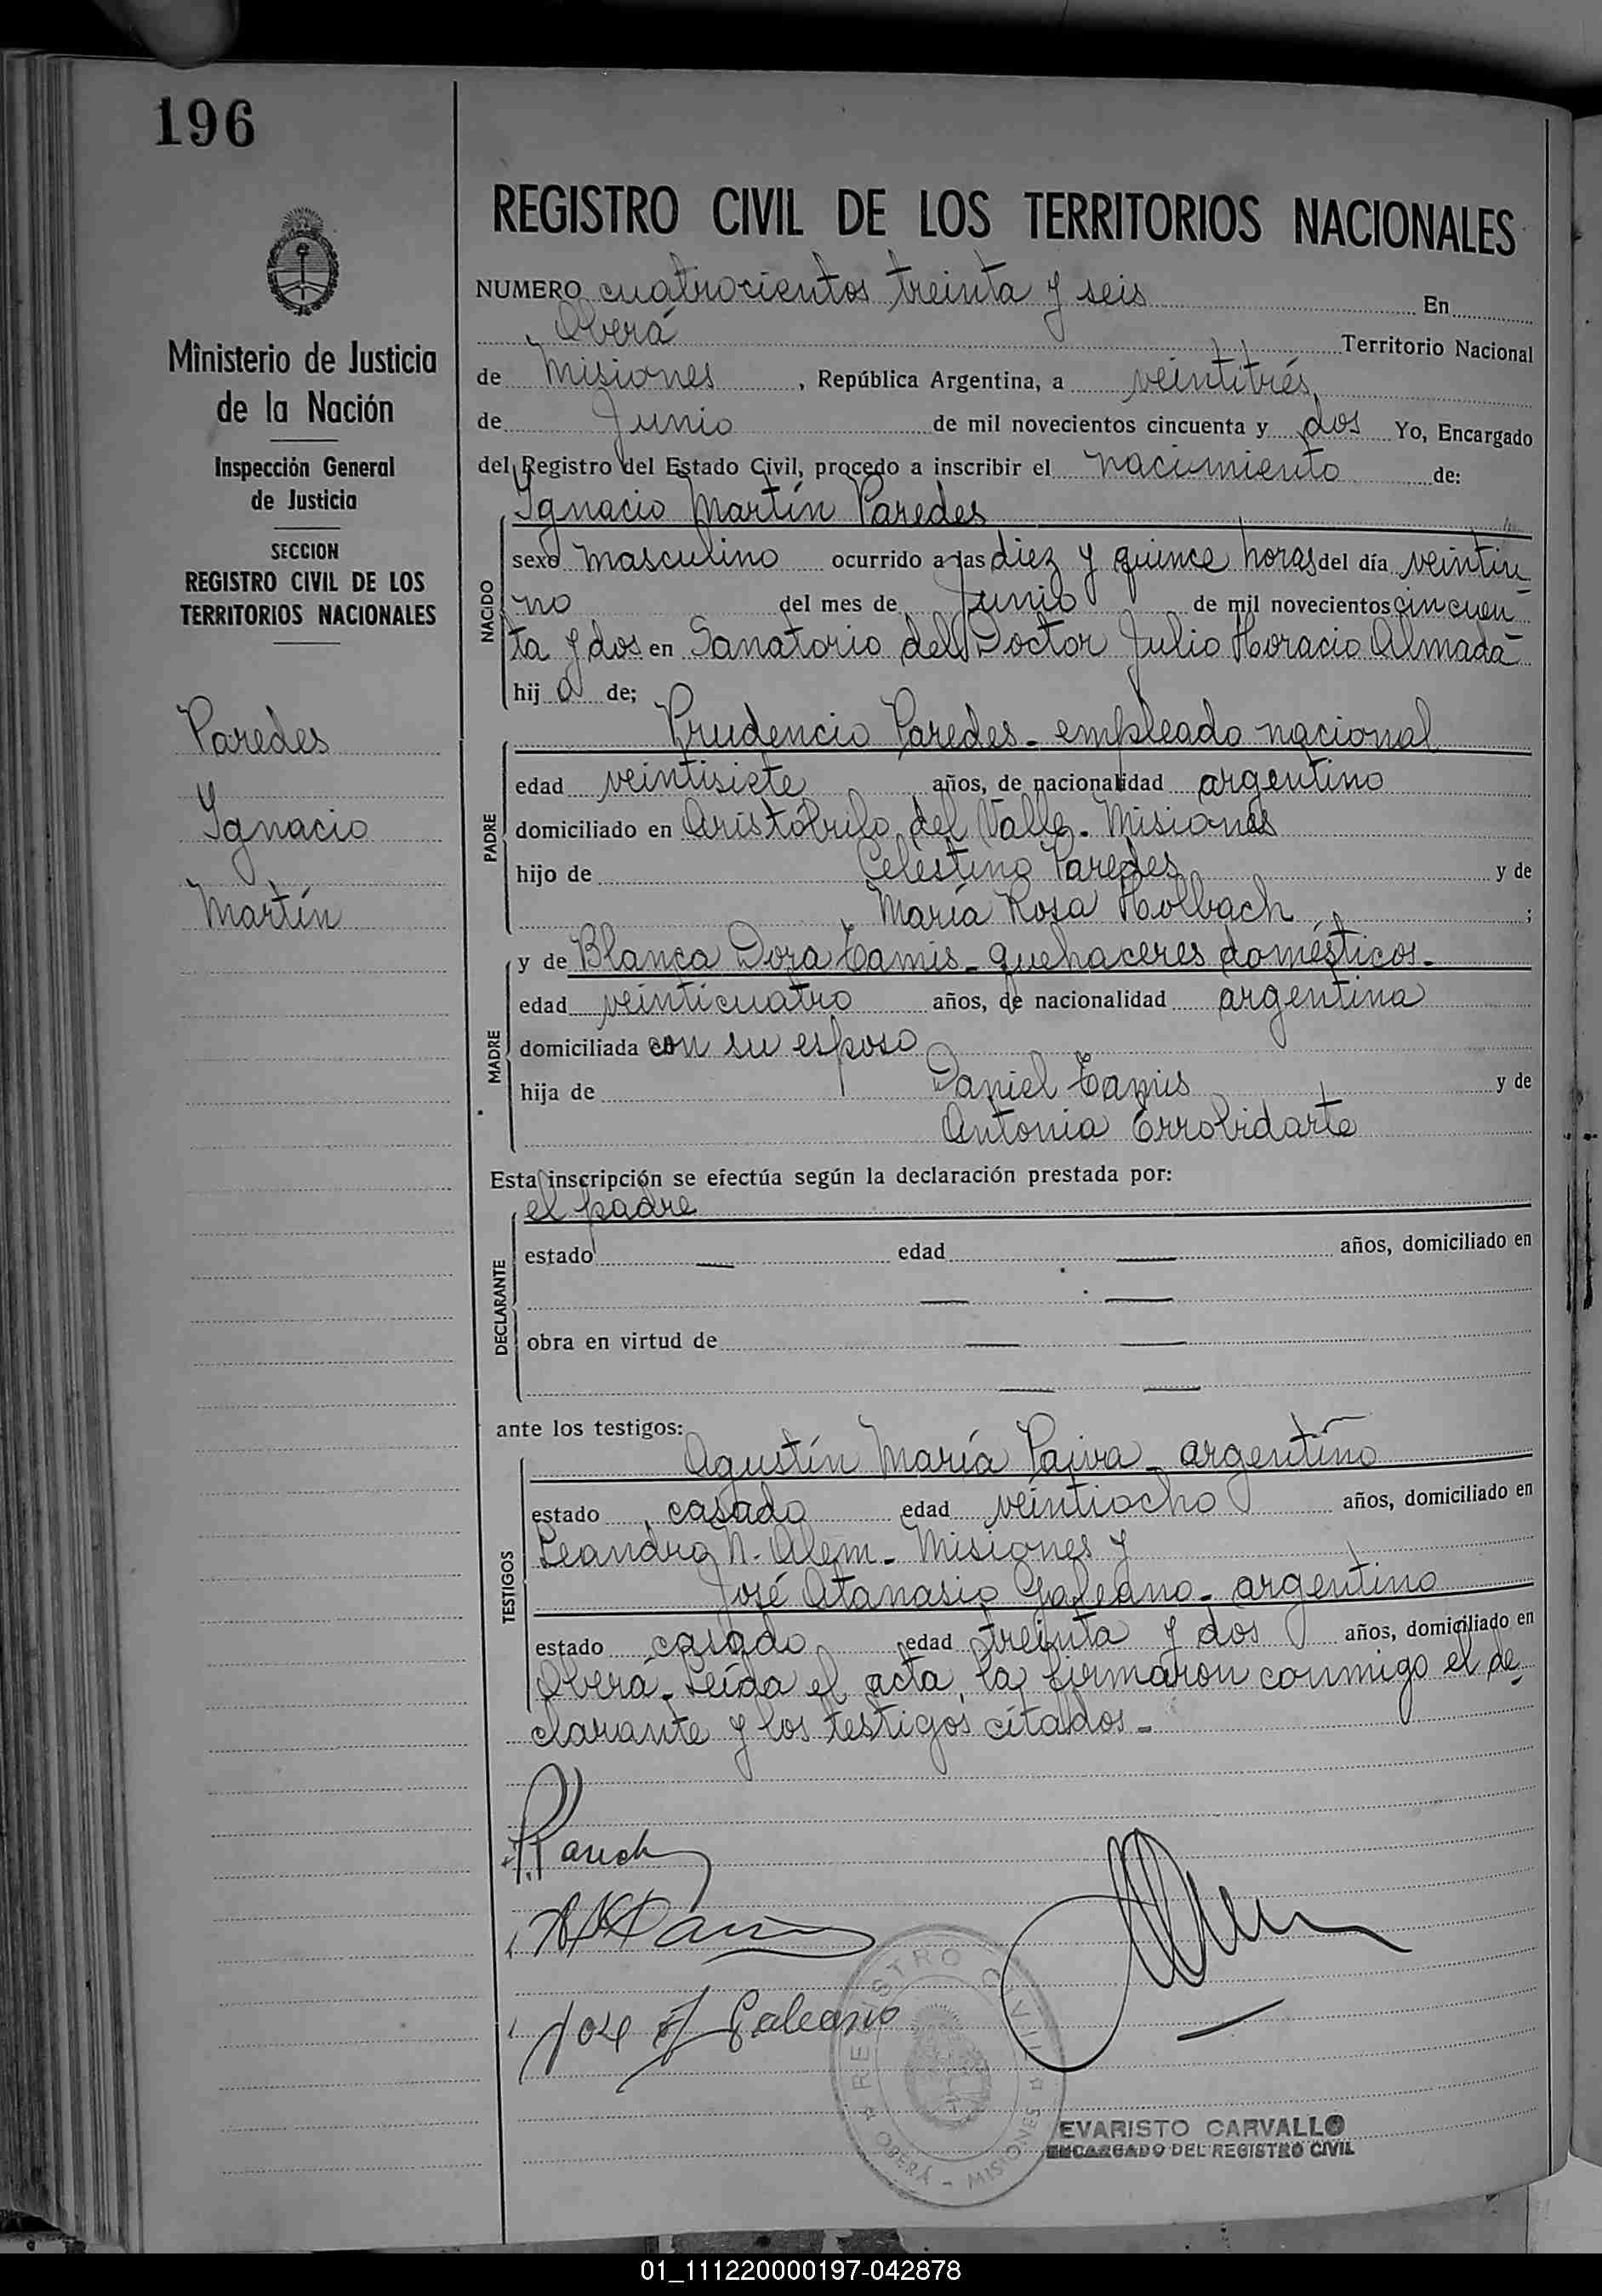 196
Ministerio de Justicia
de la Nación
Inspección General
de Justicia
SECCION
REGISTRO CIVIL DE LOS
TERRITORIOS NACIONALES
Paredes
Ygnacio
Martín
REGISTRO CIVIL DE LOS TERRITORIOS NACIONALES
NUMERO cuatrocientos treinta y seis En
Oberá Territorio Nacional
de Misiones, República Argentina, a veintitrés
de Junio de mil novecientos cincuenta y dos Yo, Encargado
del Registro del Estado Civil, procedo a inscribir el nacimiento de:
Ygnacio Martín Paredes
NACIDO
sexo masculino ocurrido a las diez y quince horas del día veintiu
no del mes de Junio de mil novecientos cincuen-
ta y dos en Sanatorio del Doctor Julio Horacio Almada-
hijo de;
Prudencio Paredes - empleado nacional
PADRE
edad veintisiete años, de nacionalidad argentino
domiciliado en Aristóbulo del Valle - Misiones
hijo de Celestino Paredes y de
María Rosa Holbach ;
y de Blanca Dora Tamis - quehaceres domésticos.-
MADRE
edad veinticuatro años, de nacionalidad argentina
domiciliada con su esposo
hija de Daniel Tamis y de
Antonia Errobidarte
Esta inscripción se efectúa según la declaración prestada por:
el padre
DECLARANTE
estado — edad — años, domiciliado en
— —
obra en virtud de — —
— —
ante los testigos:
Agustín María Paiva - argentino
TESTIGOS
estado casado edad veintiocho años, domiciliado en
Leandro N. Alem - Misiones y
José Atanasio Galeano - argentino
estado casado edad treinta y dos años, domiciliado en
Oberá - Leída el acta, la firmaron conmigo el de-
clarante y los testigos citados.-
Jose A Galeano
REGISTRO CIVIL
OBERÁ - MISIONES
EVARISTO CARVALLO
ENCARGADO DEL REGISTRO CIVIL
01_111220000197-042878